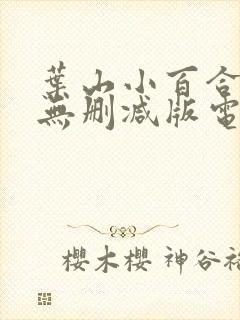 葉山小百合
無删减版電
櫻木櫻 神谷裕